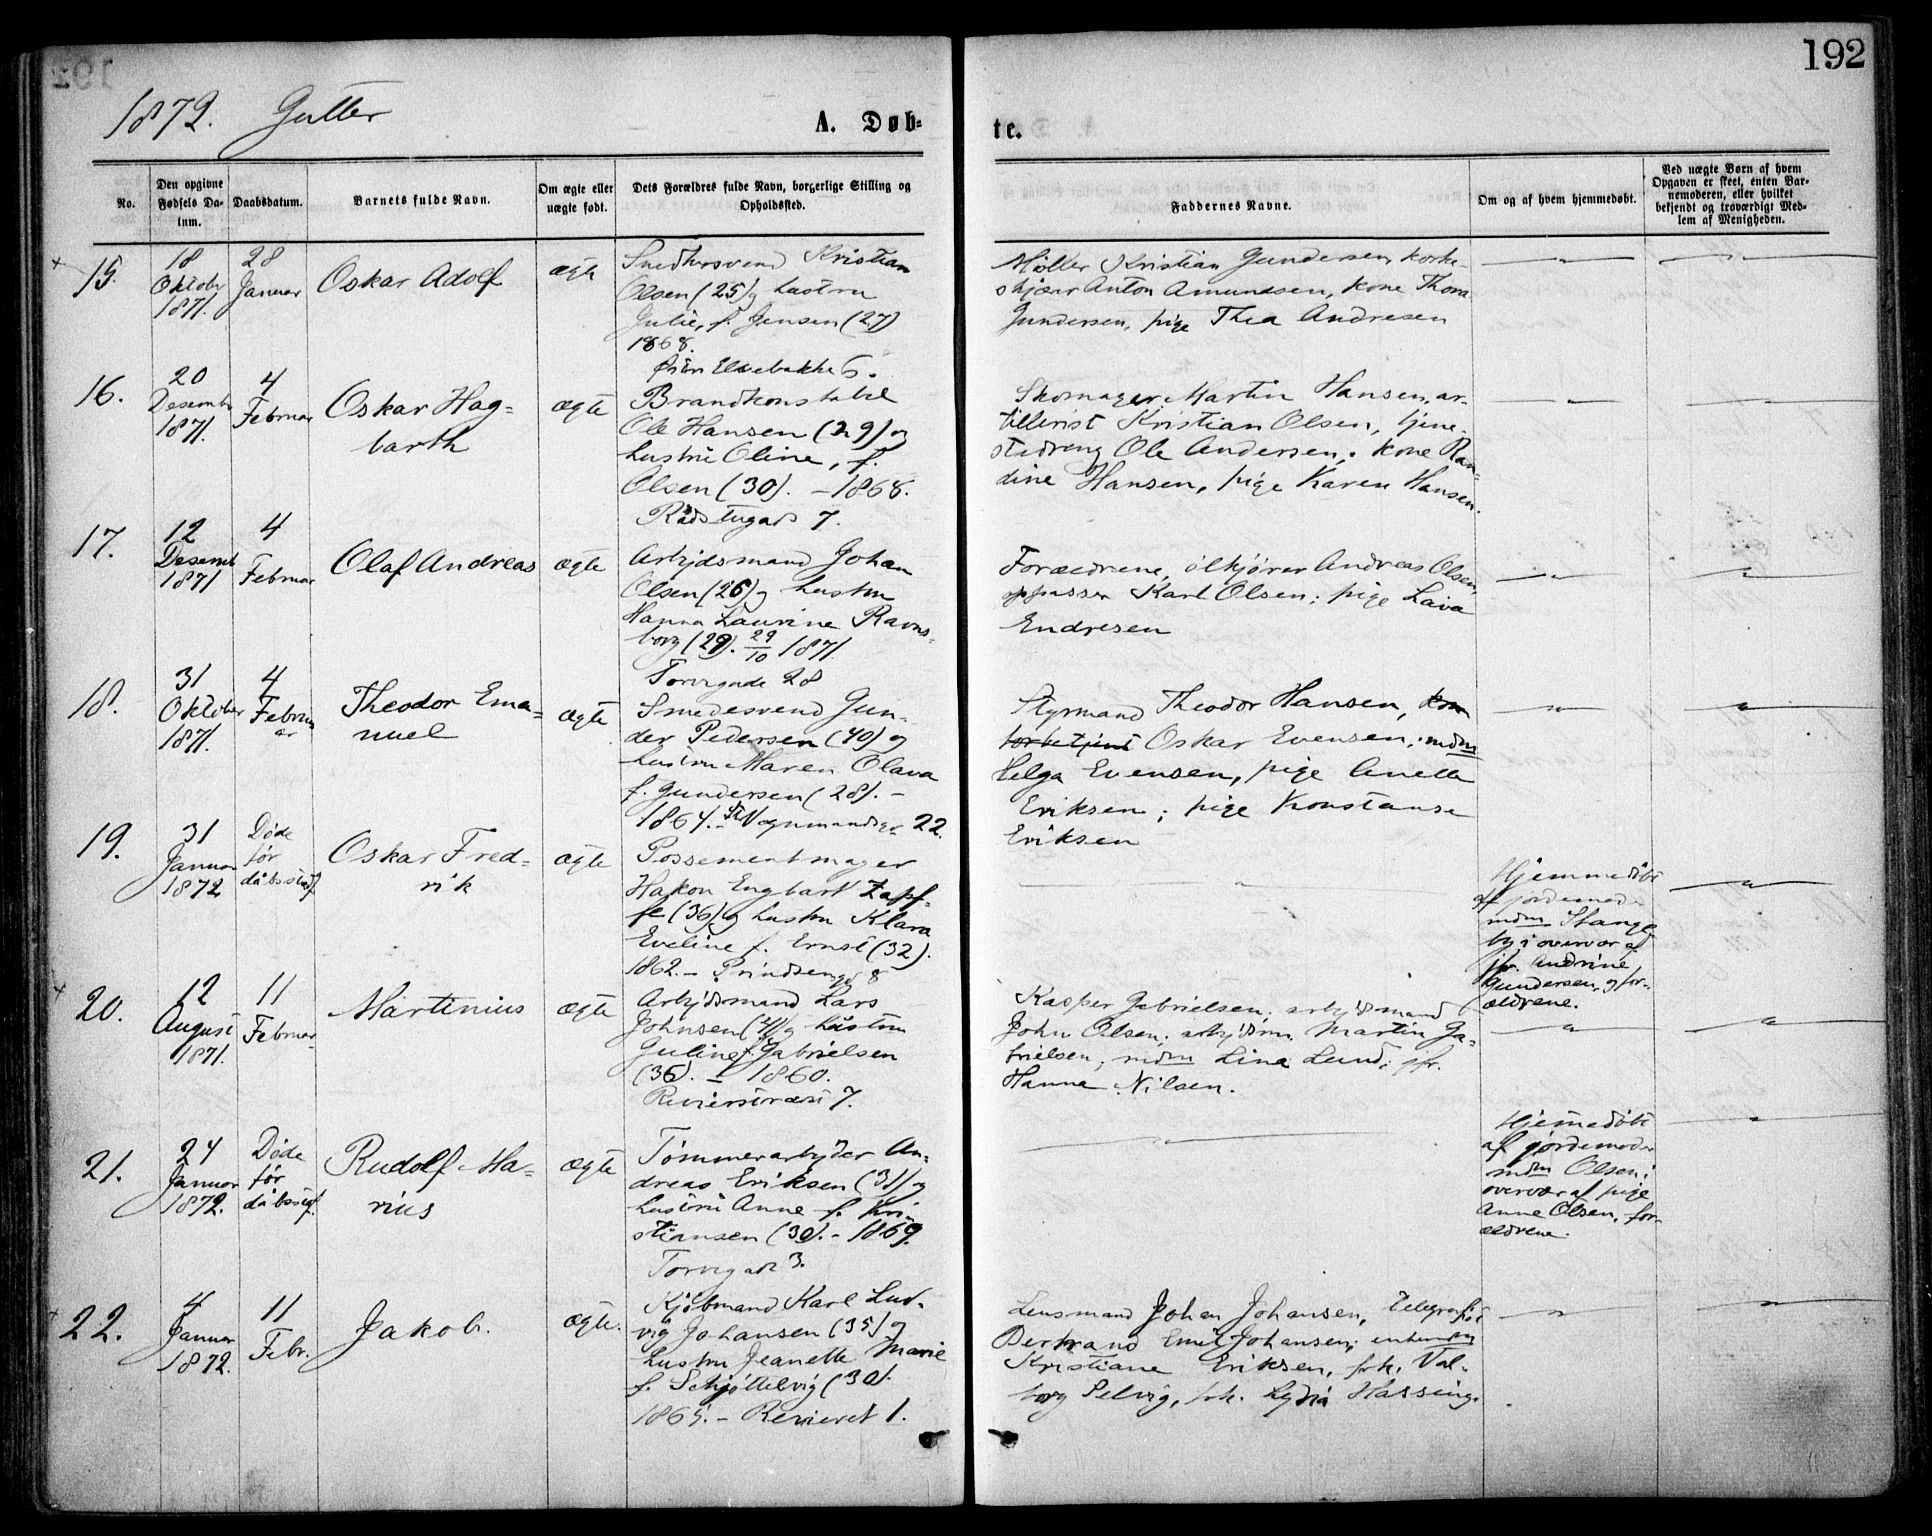 192
1872. Gutter
A. Døb-
te.
No.
Den opgivne Fødsels Da-
tum.
Daabsdatum.
Barnets fulde Navn.
Om ægte eller uægte født.
Dets Forældres fulde Navn, borgerlige Stilling og Opholdssted.
Faddernes Navne.
Om og af hvem hjemmedøbt.
Ved uægte Børn af hvem
Opgaven er skeet, enten Bar-
nemoderen, eller hvilket
bekjendt og troværdigt Med-
lem af Menigheden.
15.
18
Oktober
1871.
28
Januar
Oskar Adolf
ægte
Snedkersvend Kristian
Olsen (25) og hustru
Julie, f. Jensen (27)
1868.
Øvre Elvebakke 6.
Møller Kristian Gundersen, korke-
skjærer Anton Amundsen, kone Thora
Gundersen, pige Thea Andresen
16.
20
Desembr
1871.
4
Februar
Oskar Hag-
barth
ægte
Brandkonstabel
Ole Hansen (29) og
hustru Oline, f.
Olsen (30). – 1868.
Rådstugads 7.
Skomager Martin Hansen, ar-
tillerist Kristian Olsen, tjene-
stedreng Ole Andersen; kone Ran-
dine Hansen, pige Karen Hansen.
17.
12
Desemb
1871
4
Februar
Olaf Andreas
ægte
Arbejdsmand Johan
Olsen (26) og hustru
Hanna Laurine Ravns-
borg (29). 29/10 1871.
Torvegade 28
Forældrene, ølkjører Andreas Olsen,
oppasser Karl Olsen; pige Lava
Endresen
18.
31
Oktober
1871.
4
Februar
Theodor Ema-
nuel
ægte
Smedesvend Gun-
der Pedersen (40) og
hustru Maren Olava
f. Gundersen (28). –
1864. – St. Vognmandsg. 22.
Styrmand Theodor Hansen, kon
torbetjent Oskar Evensen; mdm
Helga Evensen, pige Anette
Eriksen; pige Konstanse
Eriksen
19.
31
Januar
1872
Døde
før
dåbsstadf.
Oskar Fred-
rik
ægte
Possementmager
Hakon Engbart Zapf-
fe (36) og hustru Klara
Eveline f. Ernst (32).
1862. – Prindsensgd 8
Hjemmedøbt
af jordemoder
mdm Stange
by i overvær af
jfr. Andrine
Gundersen, og for-
ældrene.
20.
12
August
1871.
11
Februar
Martinius
ægte
Arbejdsmand Lars
Johnsen (41) og hustru
Guline f. Gabrielsen
(36). – 1860.
Revierstrædet 7.
Kasper Gabrielsen; arbejdsmand
John Olsen; arbejdsm. Martin Ga-
brielsen; mdm Lina Lund; jfr.
Hanna Nilsen.
21.
24
Januar
1872.
Døde
før
dåbsstf.
Rudolf Ma-
rius
ægte
Tømmerarbejder An-
dreas Eriksen (31) og
hustru Anne f. Kri-
stiansen (30). – 1869.
Torvegade 3.
Hjemmedøbt
af jordemoder
mdm Olsen i
overvær af pige
Anne Olsen, for-
ældrene.
22.
4
Januar
1872.
11
Febr.
Jakob.
ægte.
Kjøbmand Karl Lud-
vig Johansen (35) og
hustru Jeanette Marie
f. Schjøttelvig (30).
1865. – Revieret 1.
Lensmand Johan Johansen, telegrafist
Bertrand Emil Johansen;
Kristiane Eriksen, frk. Val-
borg Selvig, frk. Lydia Hassing.